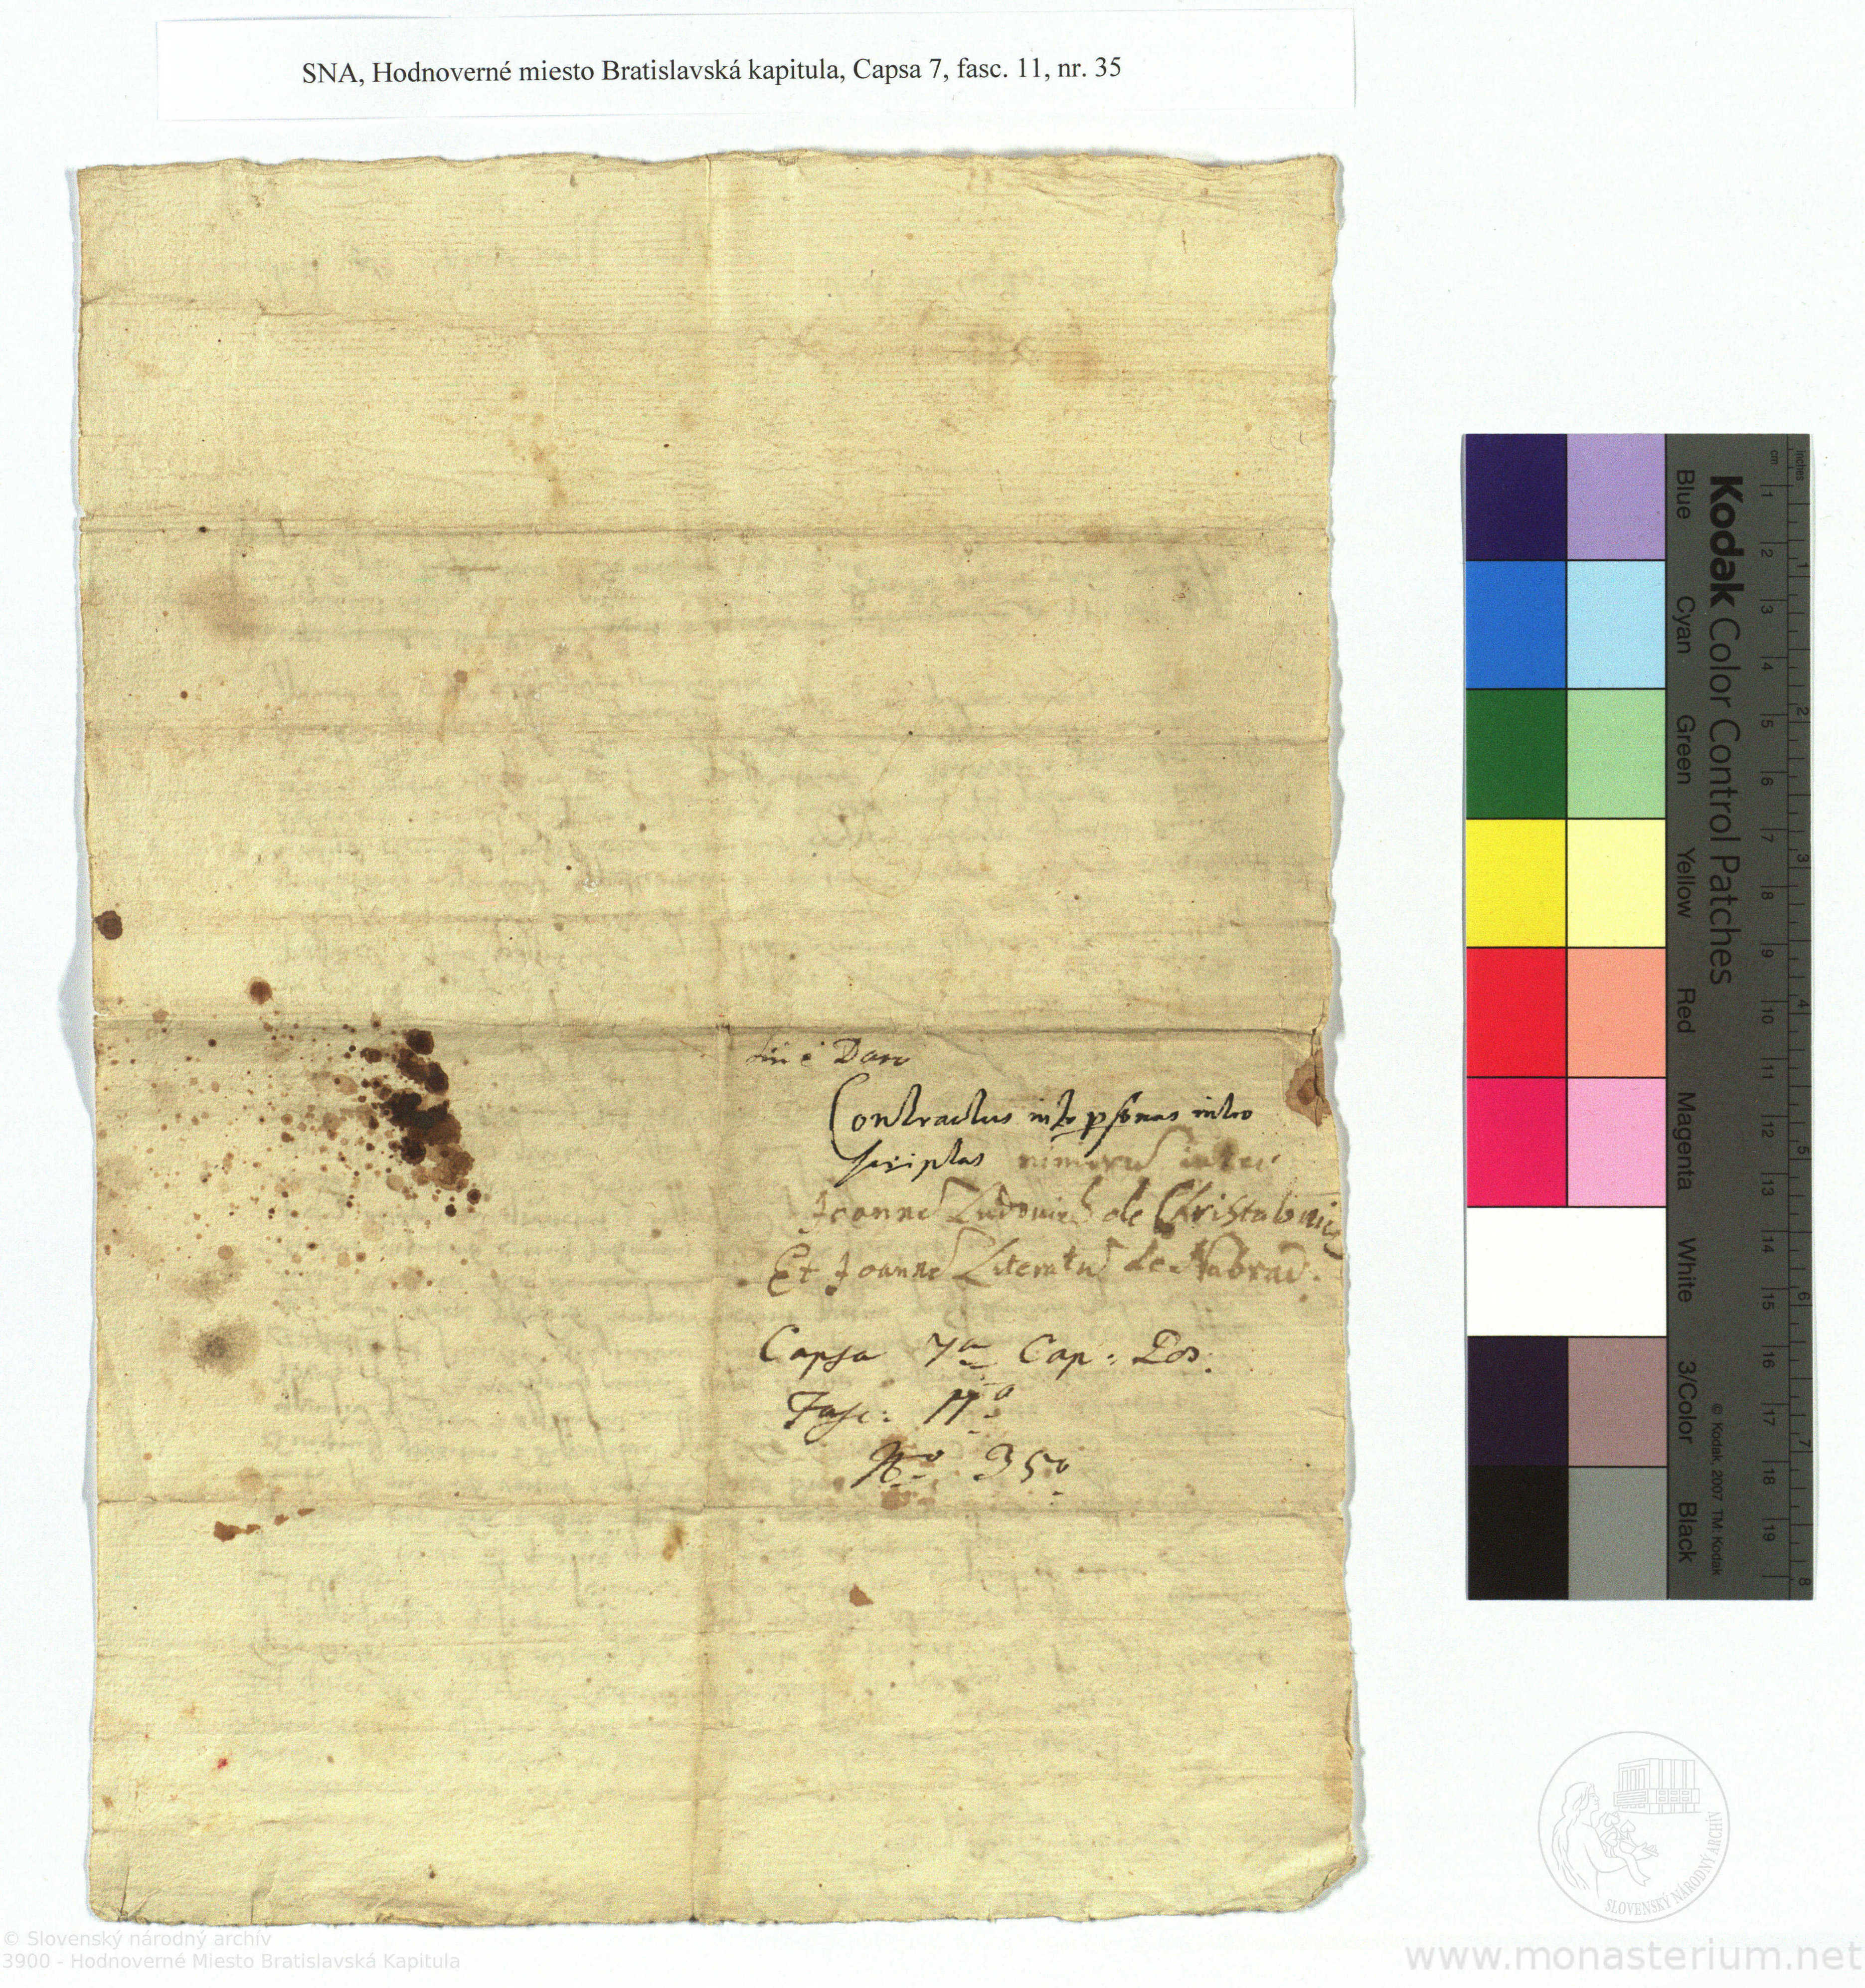 SNA, Hodnoverné miesto Bratislavská kapitula, Capsa 7, fasc. 11, nr. 35
Contractus inter psonas intro
scriptas nimirū inter
Joannē Ludovich de Christalovicz
Et Joannē Literatū de Nabrad.
Capsa 7a Cap: Pos.
Fasc: 11o
No 35o
Kodak Color Control Patches
Blue Cyan Green Yellow Red Magenta White 3/Color Black
© Kodak, 2007 TM: Kodak
cm 1 2 3 4 5 6 7 8 9 10 11 12 13 14 15 16 17 18 19
inches 1 2 3 4 5 6 7 8
SLOVENSKÝ NÁRODNÝ ARCHÍV
© Slovenský národný archív
3900 - Hodnoverné Miesto Bratislavská Kapitula
www.monasterium.net